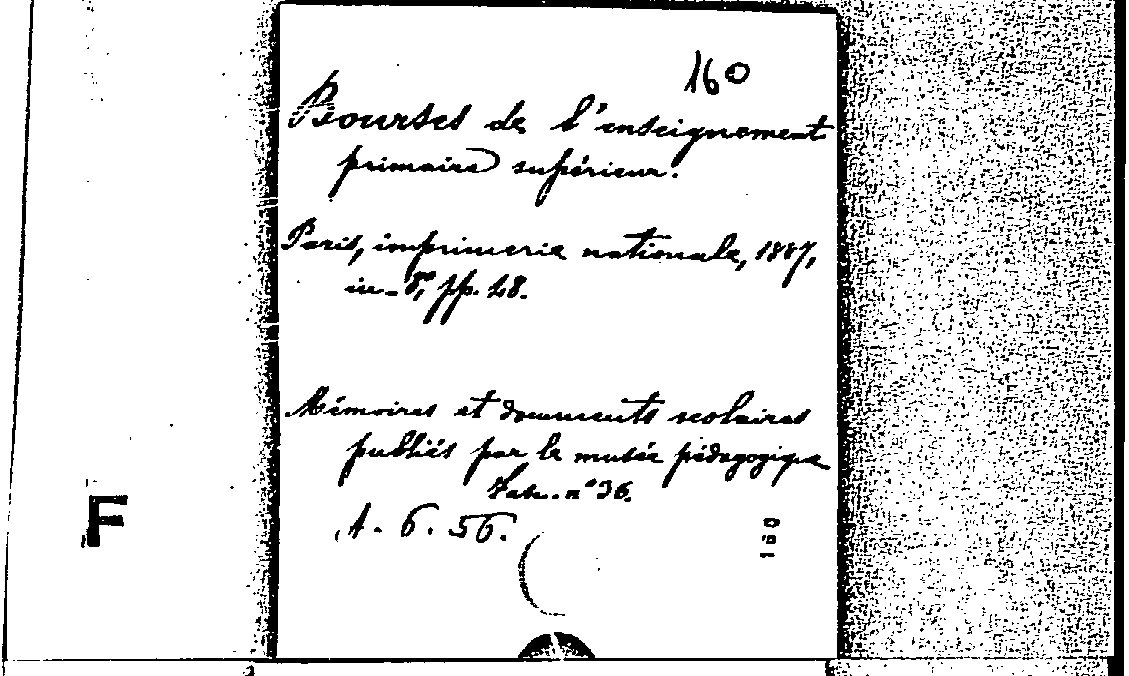 160
Bourses de l'enseignement
primaire supérieur.
Paris, imprimerie nationale, 1887,
in-8°, pp. 48.
Mémoires et documents scolaires
publiés par le musée pédagogique
Fasc. n° 36.
A. 6. 56.
160
F